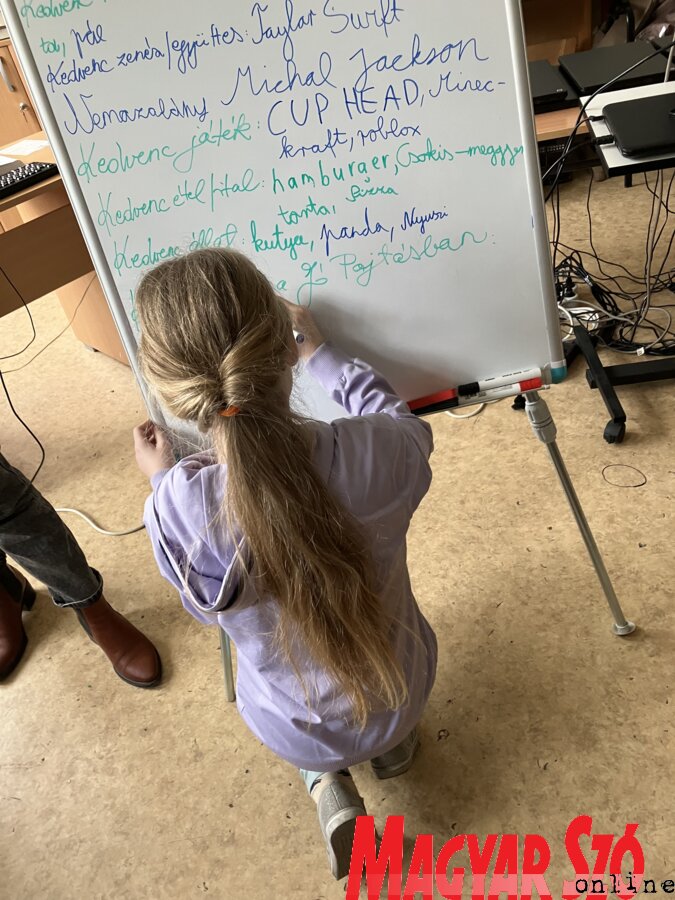 Kedvenc
tol, ple
Kedvenc zenész/együttes: Taylor Swift
Nemazalány Michal Jackson
Kedvenc játék: CUP HEAD, Minec-
kraft, roblox
Kedvenc étel/ital: hamburger, Csokis-meggyes
torta, Pizza
Kedvenc állat: kutya, panda, Nyuszi
a Jó Pajtásban:
MAGYAR SZÓ
online